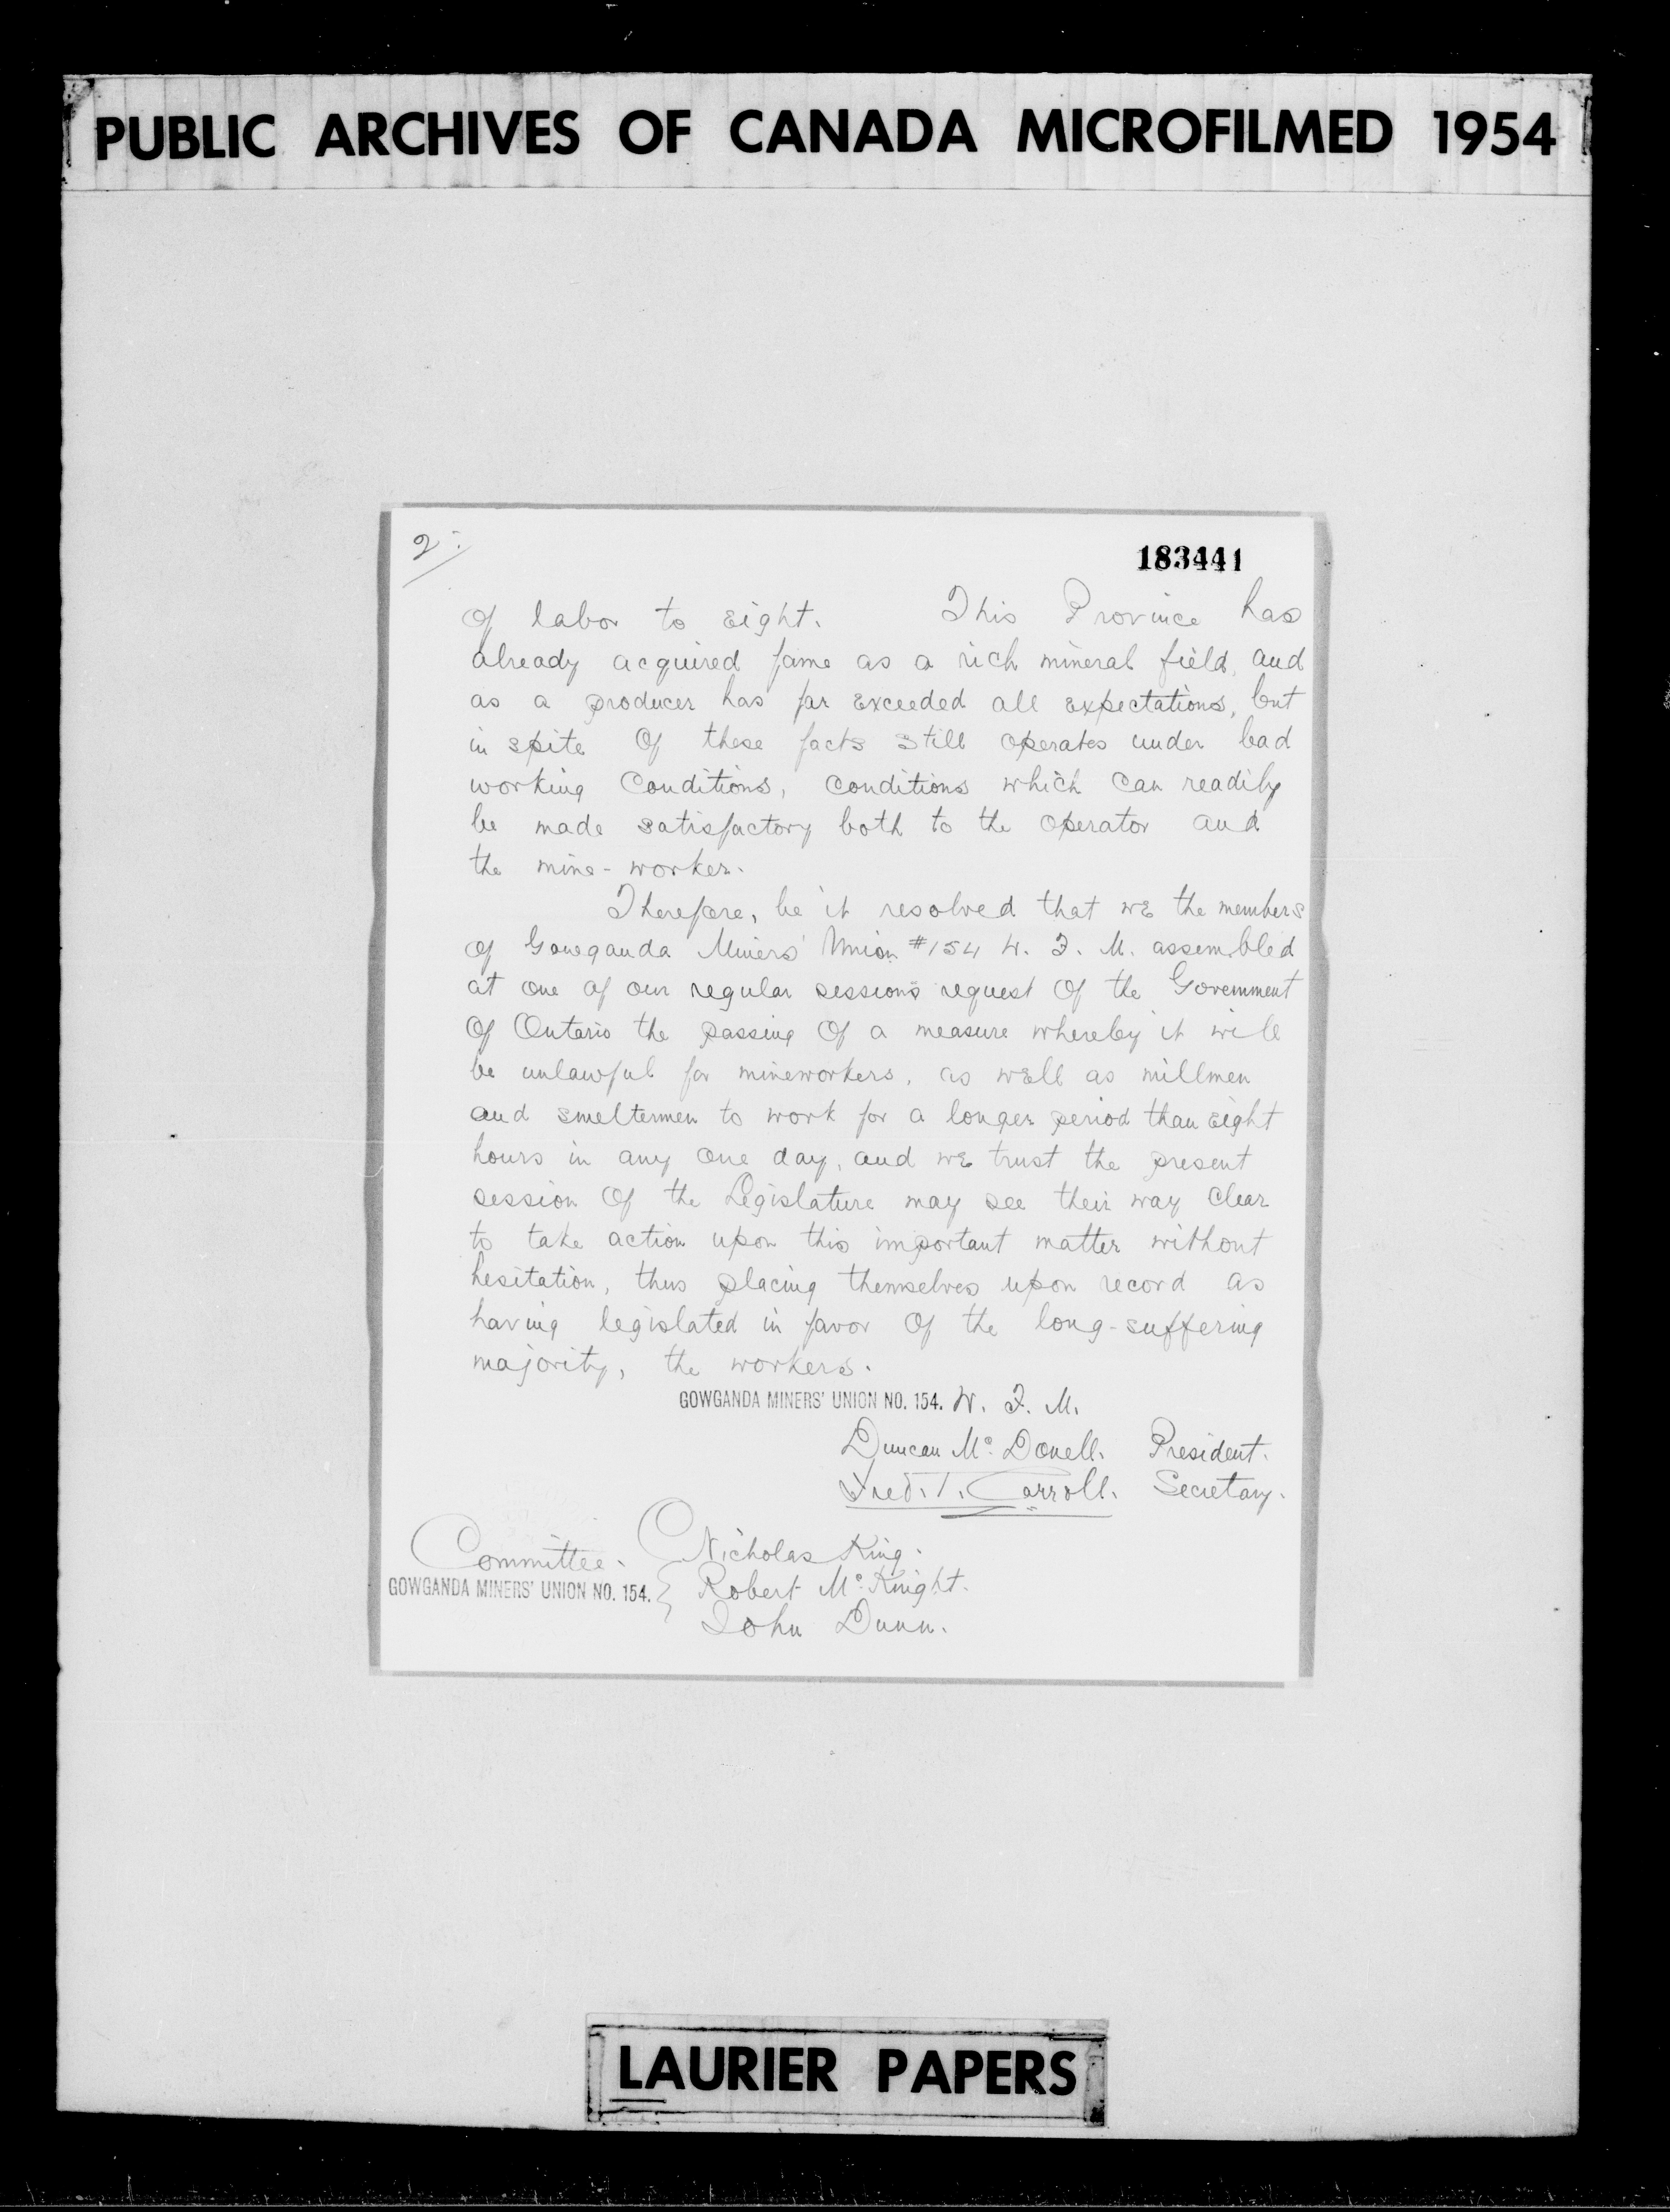 PUBLIC ARCHIVES OF CANADA MICROFILMED 1954
2:
183441
of labor to eight. This Province has
already acquired fame as a rich mineral field, and
as a producer has far exceeded all expectations, but
in spite of these facts still operates under bad
working conditions, conditions which can readily
be made satisfactory both to the operator and
the mine-worker.
Therefore, be it resolved that we the members
of Gowganda Miners' Union #154 W. F. M. assembled
at one of our regular sessions request of the Government
of Ontario the passing of a measure whereby it will
be unlawful for mineworkers, as well as millmen
and smeltermen to work for a longer period than eight
hours in any one day, and we trust the present
session of the Legislature may see their way clear
to take action upon this important matter without
hesitation, thus placing themselves upon record as
having legislated in favor of the long-suffering
majority, the workers.
GOWGANDA MINERS' UNION NO. 154. W. F. M.
Duncan McDonell. President.
Fred. T. Carroll. Secretary.
Committee. Nicholas King.
GOWGANDA MINERS' UNION NO. 154. Robert McKnight.
John Dunn.
LAURIER PAPERS